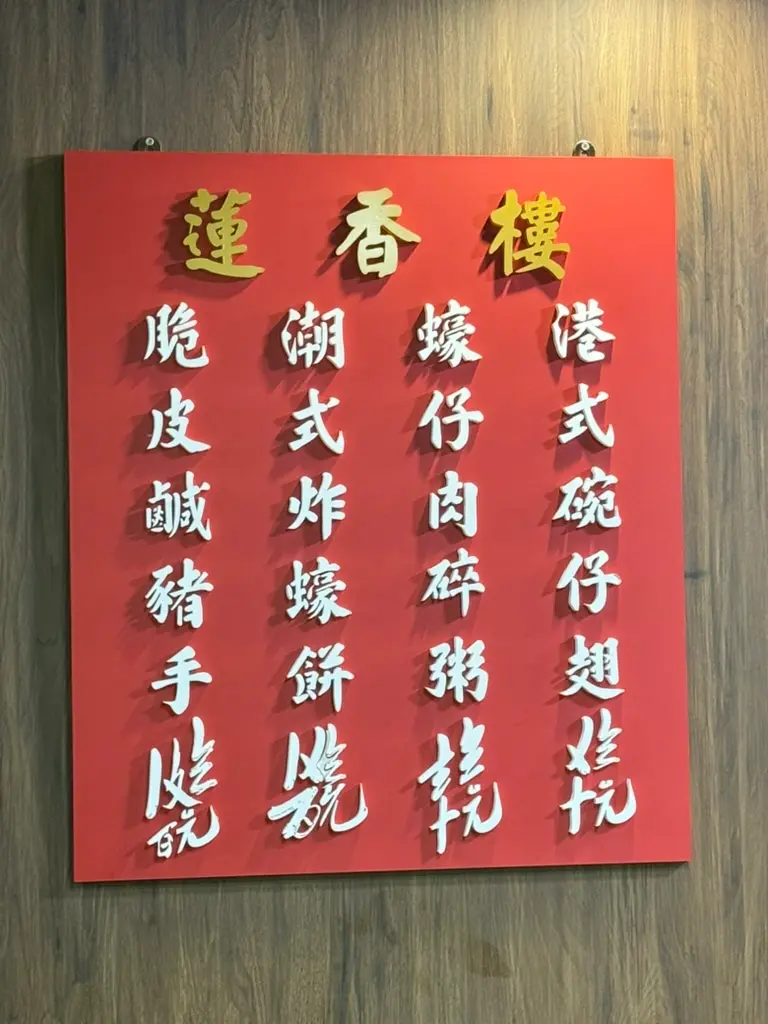 蓮香樓
港式碗仔翅
蠔仔肉碎粥
潮式炸蠔餅
脆皮鹹豬手